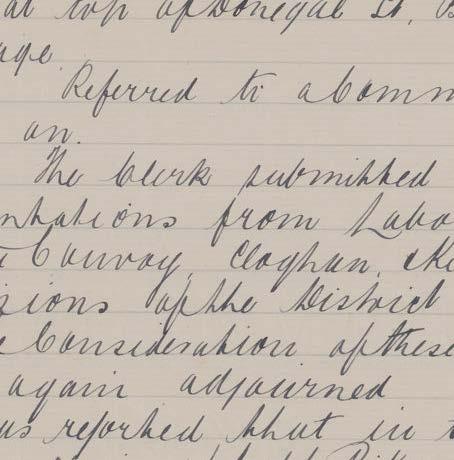 at top of Donegal St, B
age
Referred to a Comm
on.
The Clerk submitted
ntations from Labo
Convoy, Cloghan, Ki
sions of the District
Consideration of these
again adjourned
as reported that in t